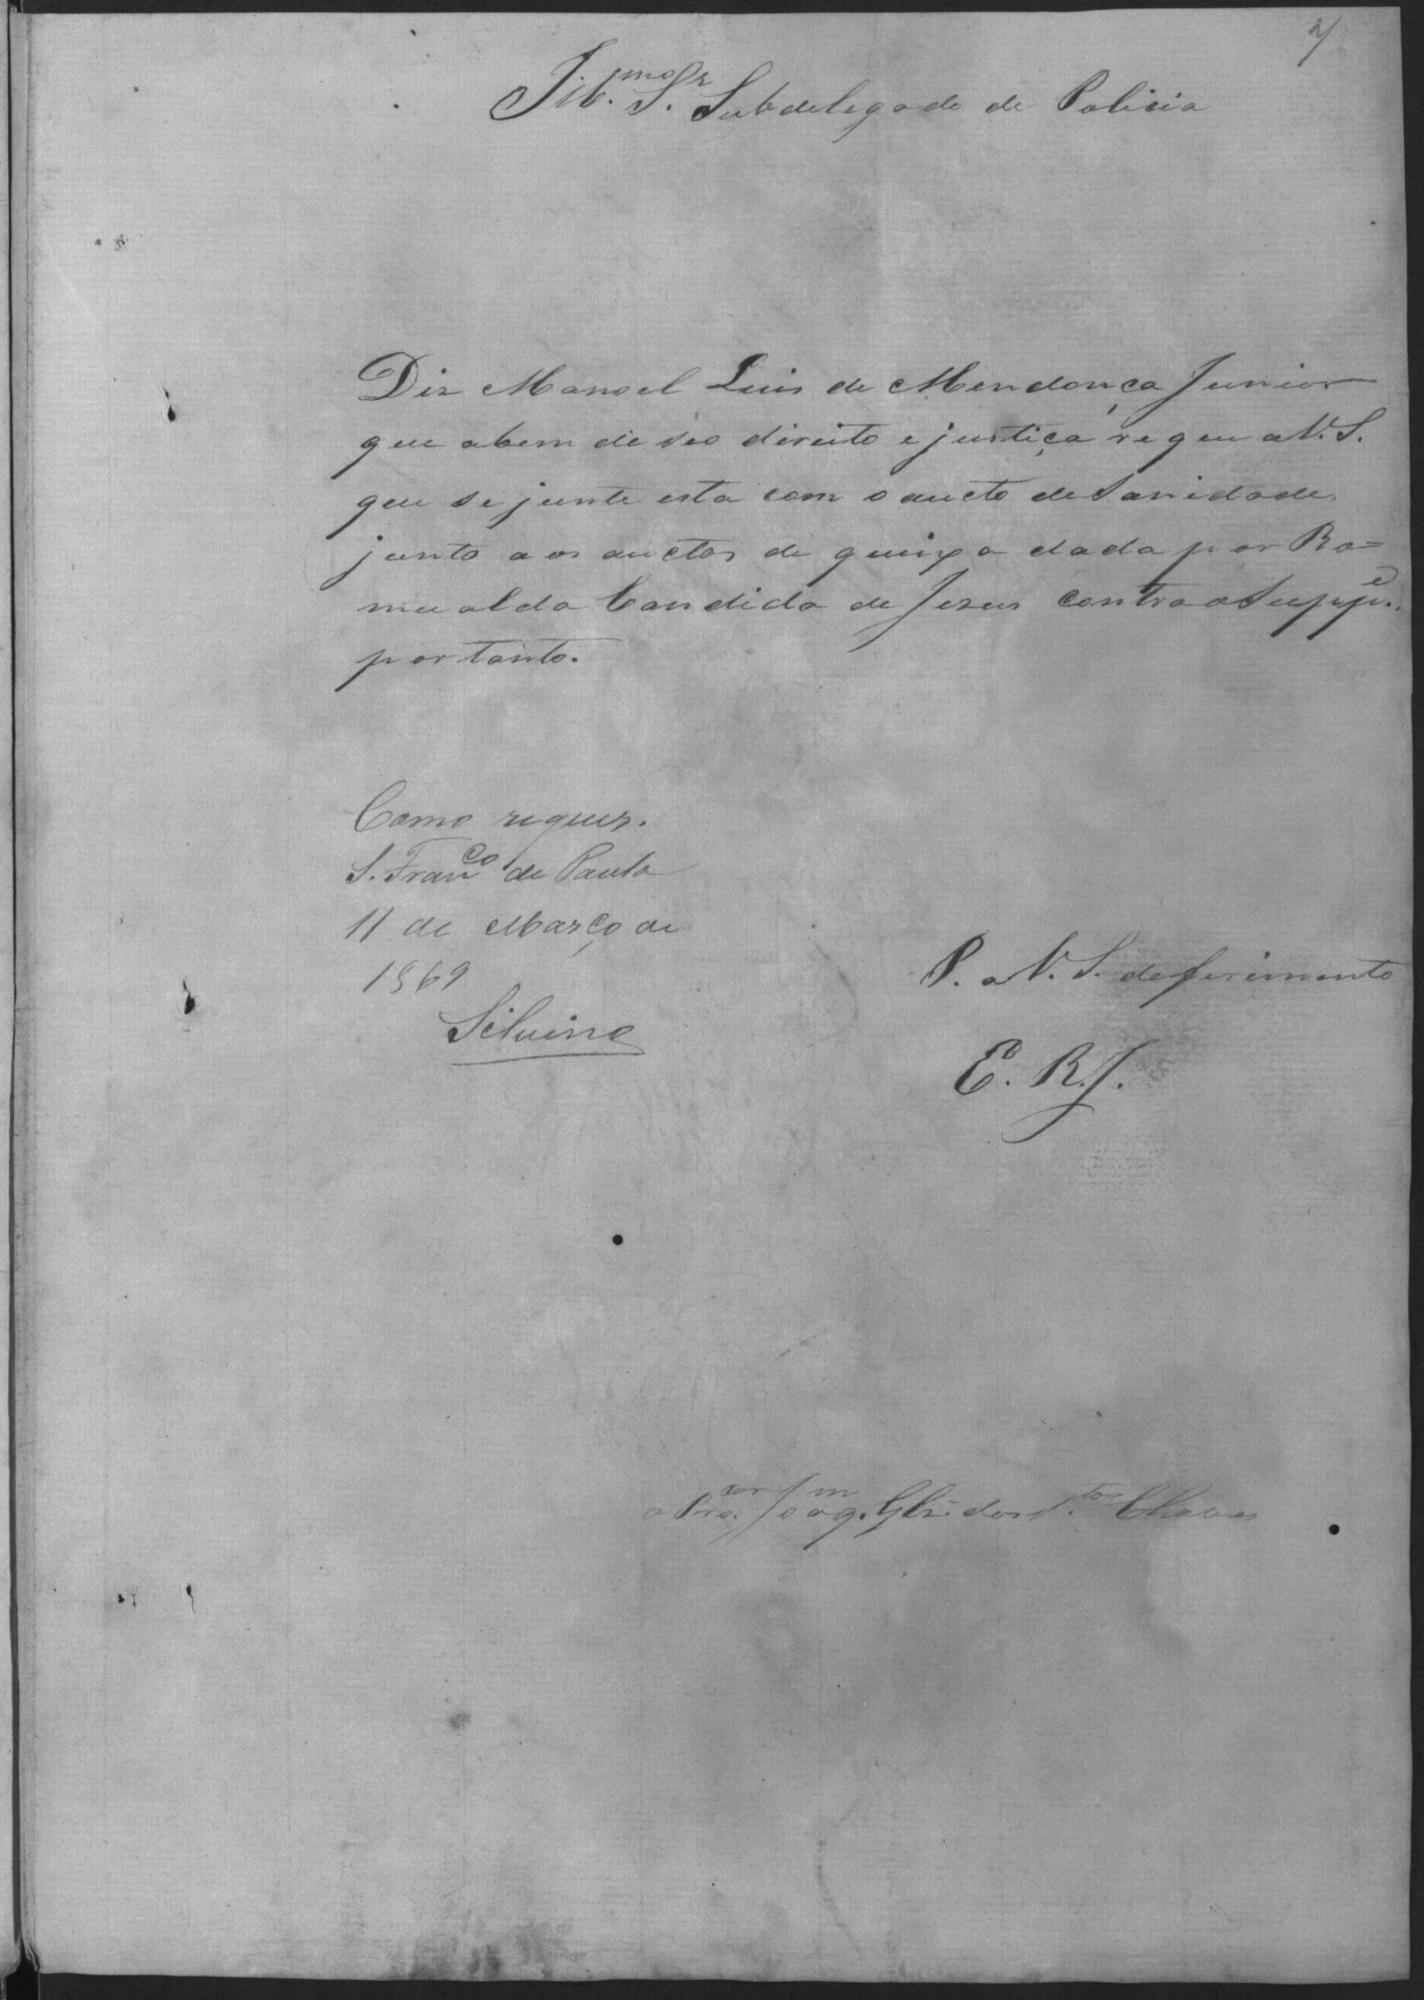 7
Ill.mo S.r Subdelegado de Policia
Diz Manoel Luis de Mendonça Junior
que abem de seo direito e justiça requer a V. S.
que se junte esta com o aucto de Sanidade
junto aos auctos de queixa dada por Ro=
mualda Candida de Jesus contra o Supp.e
portanto.
Como requer.
S. Fran.co de Paula
11 de Março de
1869
Silvino
P. a V. S. deferimento
E. R. J.
o Pro.or Joaq.m dos S.tos Chaves